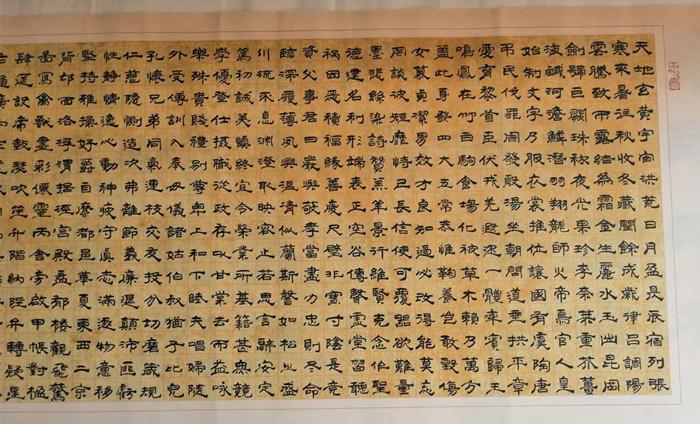 天地玄黃宇宙洪荒日月盈昃辰宿列張
寒來暑往秋收冬藏閏餘成歲律呂調陽
雲騰致雨露結為霜金生麗水玉出崑岡
劍號巨闕珠稱夜光果珍李柰菜重芥薑
海鹹河淡鱗潛羽翔龍師火帝鳥官人皇
始制文字乃服衣裳推位讓國有虞陶唐
弔民伐罪周發殷湯坐朝問道垂拱平章
愛育黎首臣伏戎羌遐邇一體率賓歸王
鳴鳳在竹白駒食場化被草木賴及萬方
蓋此身髮四大五常恭惟鞠養豈敢毀傷
女慕貞潔男效才良知過必改得能莫忘
罔談彼短靡恃己長信使可覆器欲難量
墨悲絲染詩讚羔羊景行維賢克念作聖
德建名立形端表正空谷傳聲虛堂習聽
禍因惡積福緣善慶尺璧非寶寸陰是競
資父事君曰嚴與敬孝當竭力忠則盡命
臨深履薄夙興溫凊似蘭斯馨如松之盛
川流不息淵澄取映容止若思言辭安定
篤初誠美慎終宜令榮業所基籍甚無竟
學優登仕攝職從政存以甘棠去而益詠
樂殊貴賤禮別尊卑上和下睦夫唱婦隨
外受傅訓入奉母儀諸姑伯叔猶子比兒
孔懷兄弟同氣連枝交友投分切磨箴規
仁慈隱惻造次弗離節義廉退顛沛匪虧
性靜情逸心動神疲守真志滿逐物意移
堅持雅操好爵自縻都邑華夏東西二京
背邙面洛浮渭據涇宮殿盤鬱樓觀飛驚
圖寫禽獸畫彩仙靈丙舍旁啟甲帳對楹
肆筵設席鼓瑟吹笙升階納陛弁轉疑星